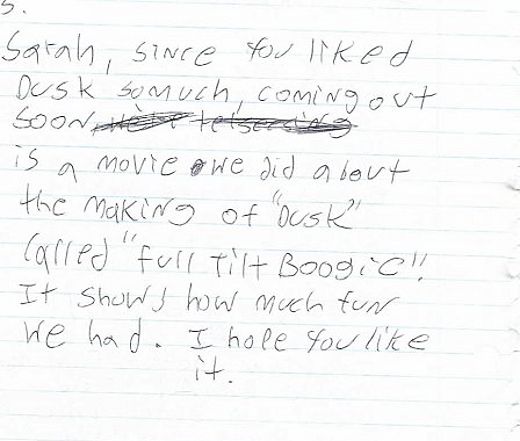 s.
Sarah, since you liked
Dusk somuch, coming out
soon,
is a movie we did about
the making of "Dusk"
Called "full Tilt Boogie".
It shows how much fun
we had. I hope you like
it.